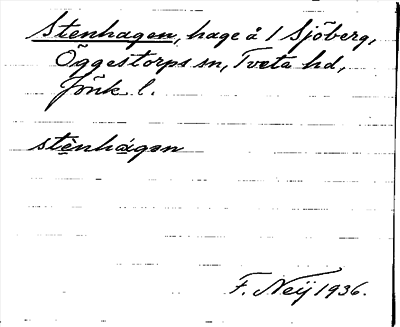 Stenhagen, hage å 1 Sjöberg,
Öggestorps sn, Tveta hd,
Jönk. l.
stènhágən
F. Neij 1936.